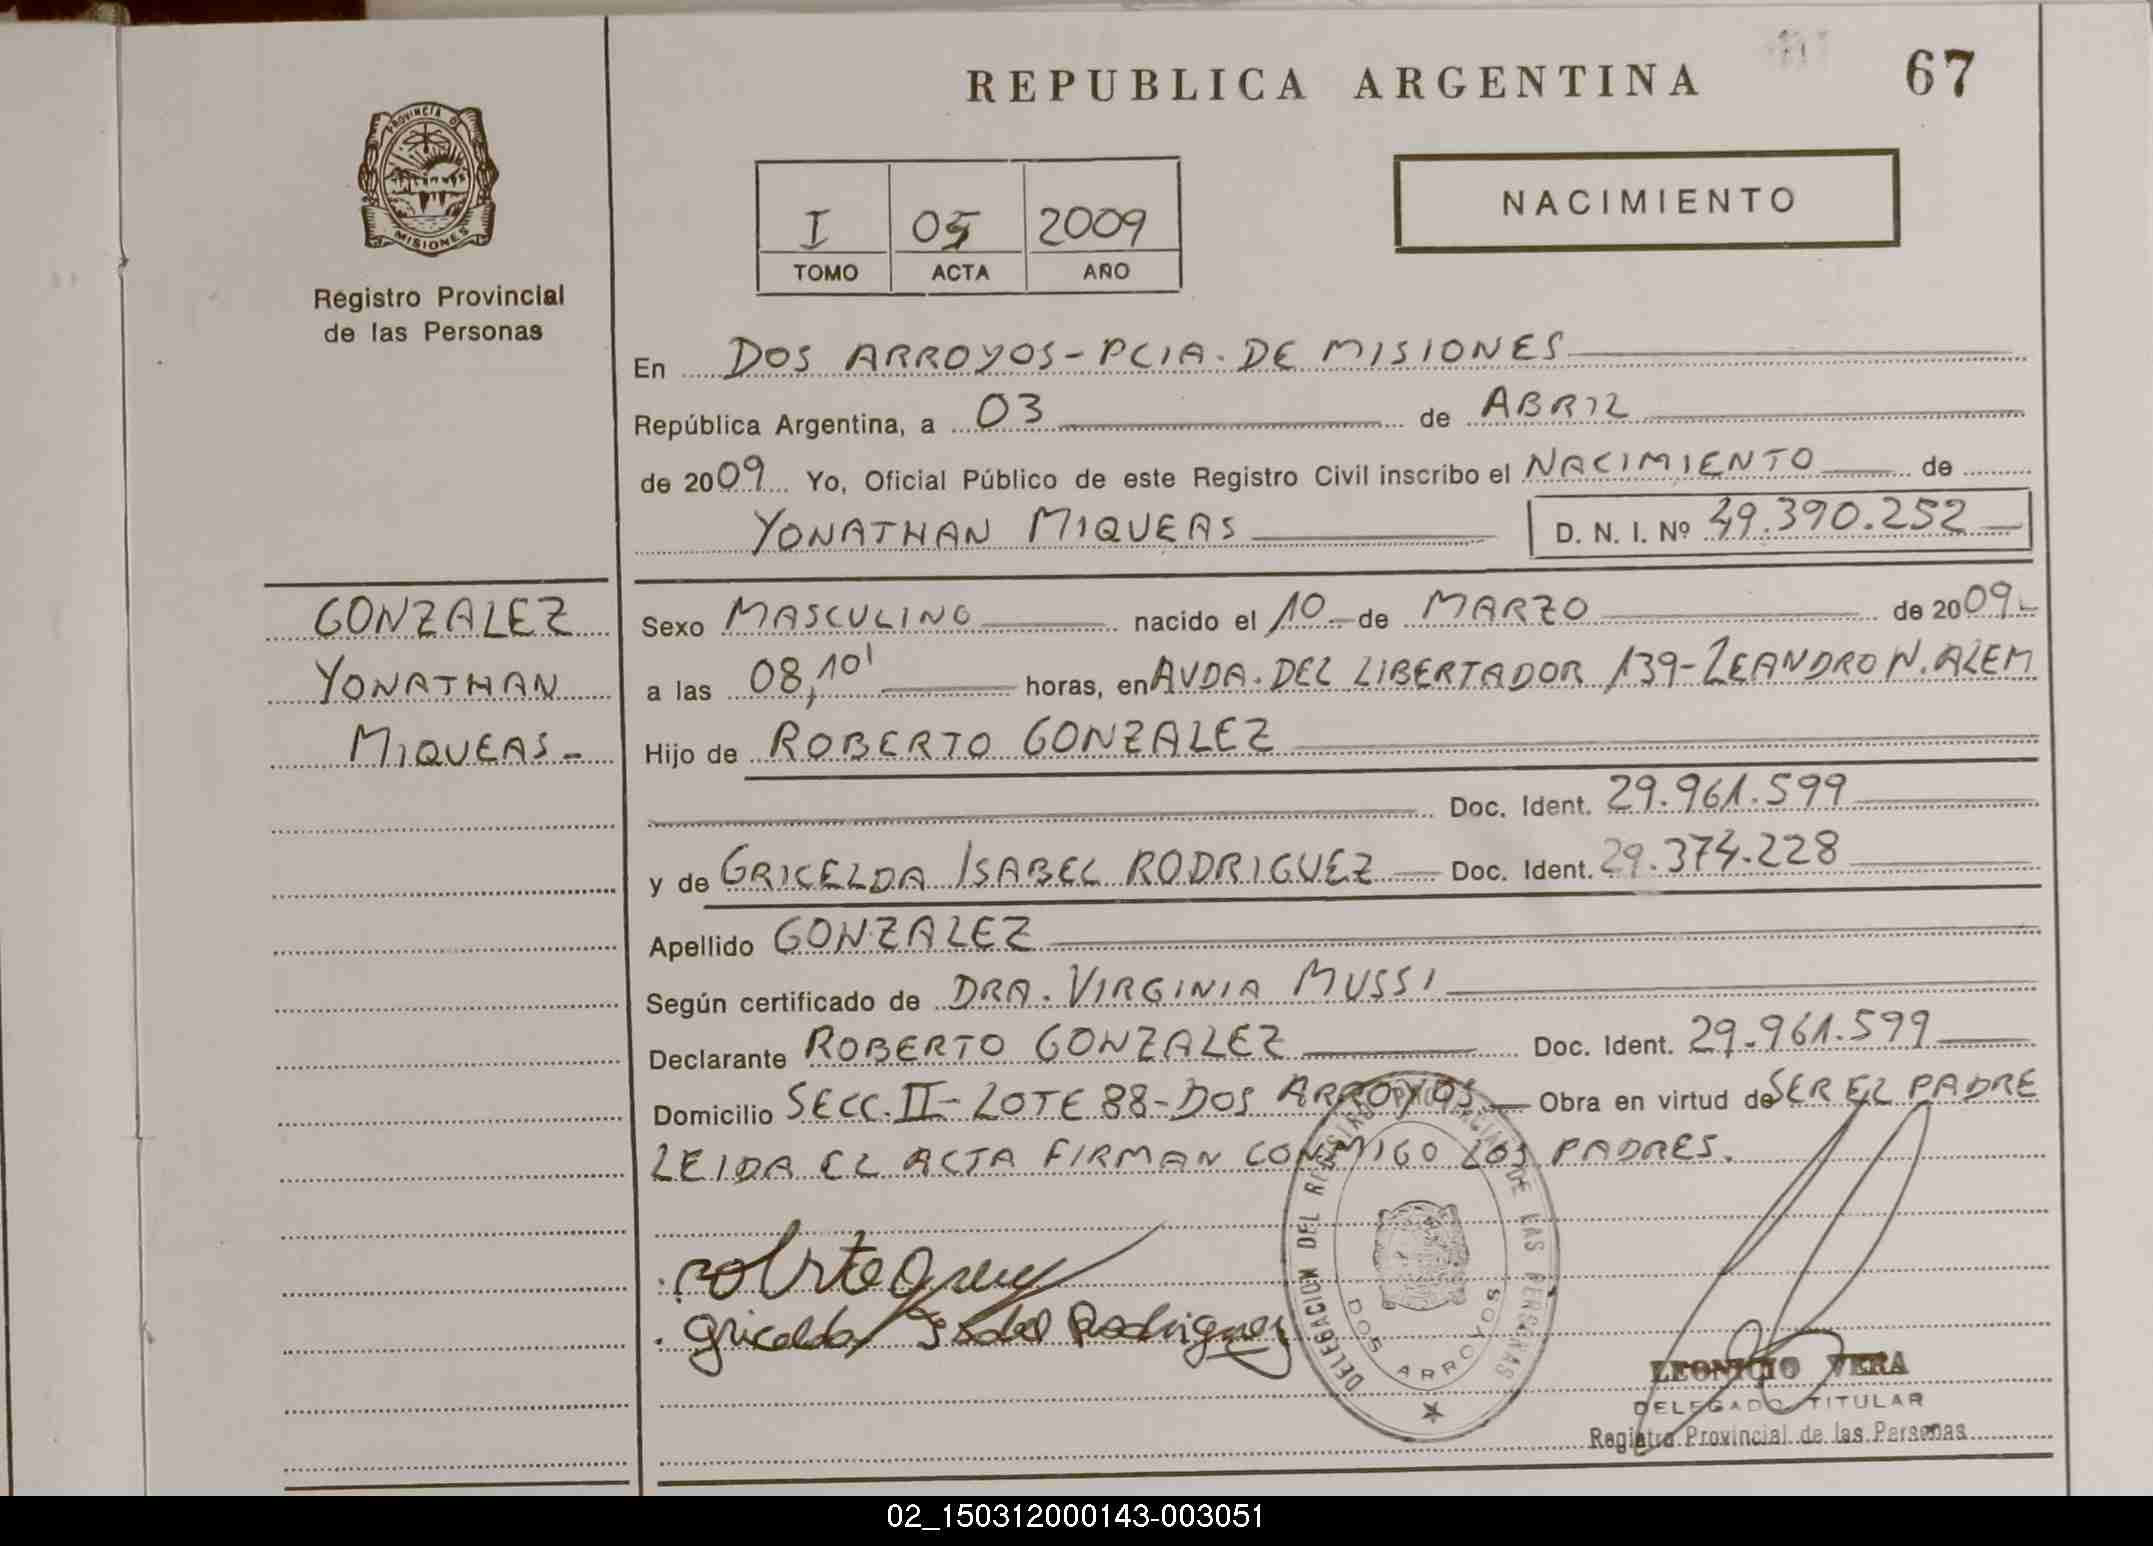 REPUBLICA ARGENTINA
67
PROVINCIA DE
MISIONES
Registro Provincial
de las Personas
I 05 2009
TOMO ACTA AÑO
NACIMIENTO
En DOS ARROYOS - PCIA. DE MISIONES
República Argentina, a 03 de ABRIL
de 2009 Yo, Oficial Público de este Registro Civil inscribo el NACIMIENTO de
YONATHAN MIQUEAS D. N. I. Nº 49.390.252
GONZALEZ
YONATHAN
MIQUEAS -
Sexo MASCULINO nacido el 10 de MARZO de 2009
a las 08,10' horas, en AVDA. DEL LIBERTADOR 139 - LEANDRO N. ALEM
Hijo de ROBERTO GONZALEZ
Doc. Ident. 29.961.599
y de GRICELDA ISABEL RODRIGUEZ Doc. Ident. 29.374.228
Apellido GONZALEZ
Según certificado de DRA. VIRGINIA MUSSI
Declarante ROBERTO GONZALEZ Doc. Ident. 29.961.599
Domicilio SECC. II - LOTE 88 - DOS ARROYOS Obra en virtud de SER EL PADRE
LEIDA EL ACTA FIRMAN CONMIGO LOS PADRES.
Gricelda Isabel Rodriguez
DELEGACION DEL REGISTRO PROVINCIAL DE LAS PERSONAS
DOS ARROYOS
LEONICIO VERA
DELEGADO TITULAR
Registro Provincial de las Personas
02_150312000143-003051